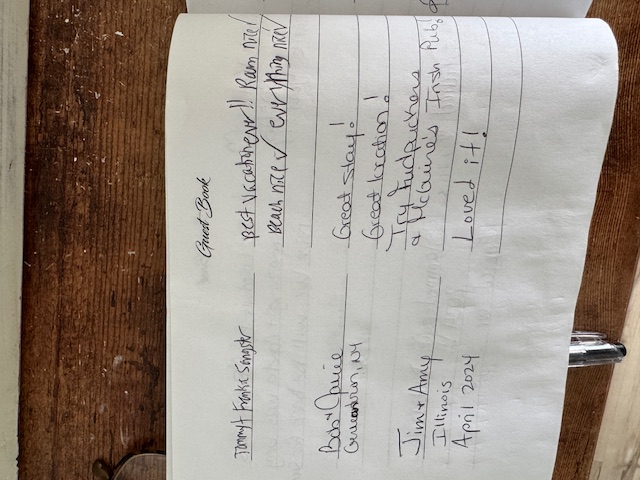 Guest Book
Tommy + Frankie Songstr Best vacation ever!! Room nice ✓
Beach nice ✓ everything nice ✓
Bob + Great stay!
NY Great location!
Jim + Amy Try Fudpuckers
Illinois & McGuires Irish Pub!
April 2024 Loved it!